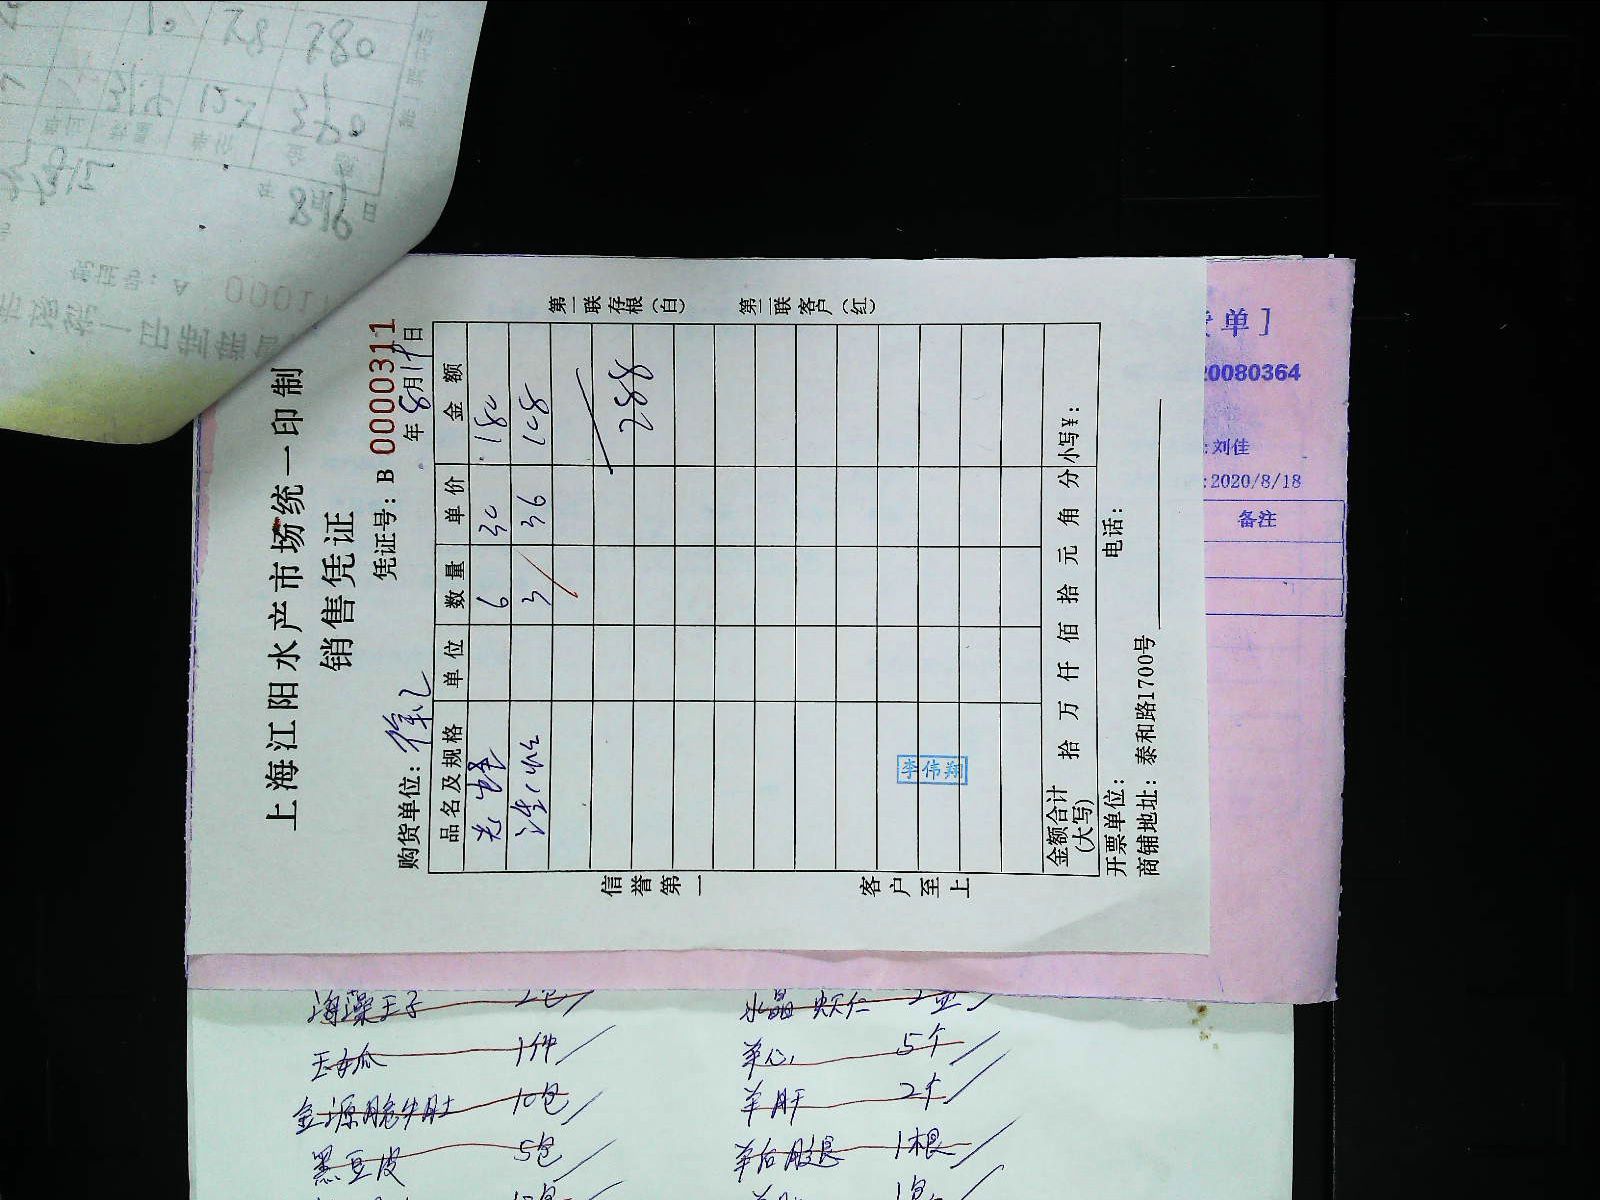 上海江阳水产市场统一印制
销售凭证
凭证号：B 0000311
购货单位：徐汇 年 8月19日
品名及规格 单位 数量 单价 金额
6 30 180
3 36 108
288
李伟翔
金额合计（大写） 拾 万 仟 佰 拾 元 角 分 小写¥：
开票单位： 电话：
商铺地址：泰和路1700号
信誉第一 客户至上
第一联存根（白） 第二联客户（红）
单］
20080364
：刘佳
：2020/8/18
备注
10 28 280
单位 数量 单价 金额
凭证号：A 0001
市场统一印制
海藻王子 2包
水晶虾仁 2盒
玉女瓜 1件
羊心 5个
金源脆牛肚 10包
羊肝 2个
黑豆皮 5包
羊后腿 1根